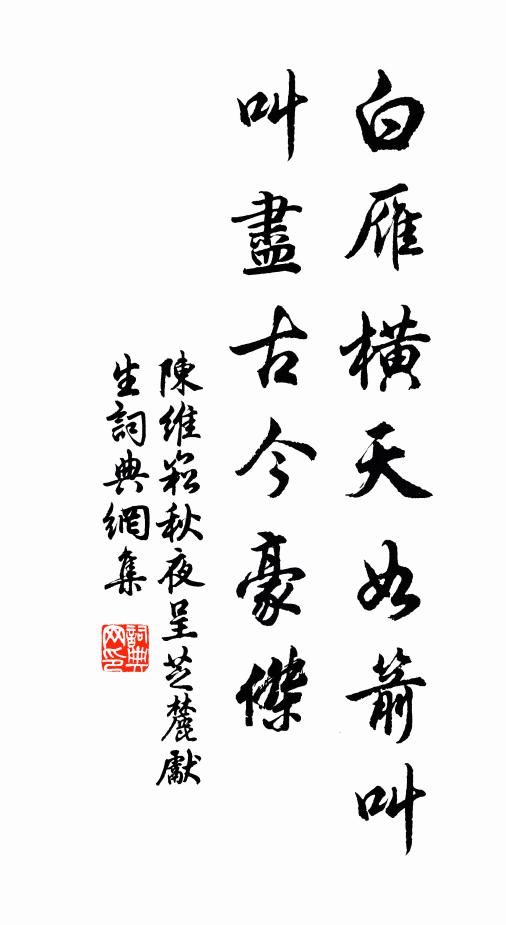 白雁橫天如箭叫
叫盡古今豪傑
陳維崧秋夜呈芝麓獻
生詞典網集
詞典网印